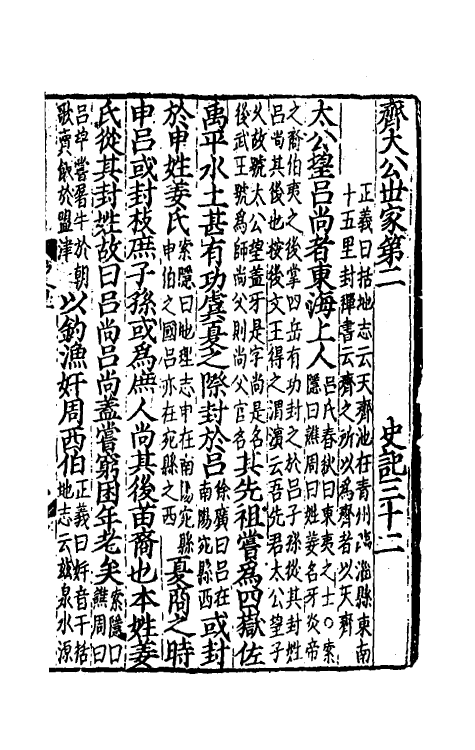 齊太公世家第二 史記三十二
正義曰括地志云天齊池在青州臨淄縣東南
十五里封禪書云齊之所以爲齊者以天齊
太公望呂尚者東海上人 呂氏春秋曰東夷之士○索
隱曰譙周曰姓姜名牙炎帝
之裔伯夷之後掌四岳有功封之於呂子孫從其封姓
呂尚其後也按後文王得之渭濱云吾先君太公望子
久故號太公望蓋牙是字尚是名
後武王號爲師尚父則尚父官名 其先祖嘗爲四嶽佐
禹平水土甚有功虞夏之際封於呂 徐廣曰呂在
南陽宛縣西 或封
於申姓姜氏 索隱曰地理志申在南陽宛縣
申伯之國呂亦在宛縣之西 夏商之時
申呂或封枝庶子孫或爲庶人尚其後苗裔也本姓姜
氏從其封姓故曰呂尚呂尚蓋嘗窮困年老矣 索隱曰
譙周曰
呂望嘗屠牛於朝
歌賣飲於盟津 以釣漁奸周西伯 正義曰奸音干括
地志云茲泉水源